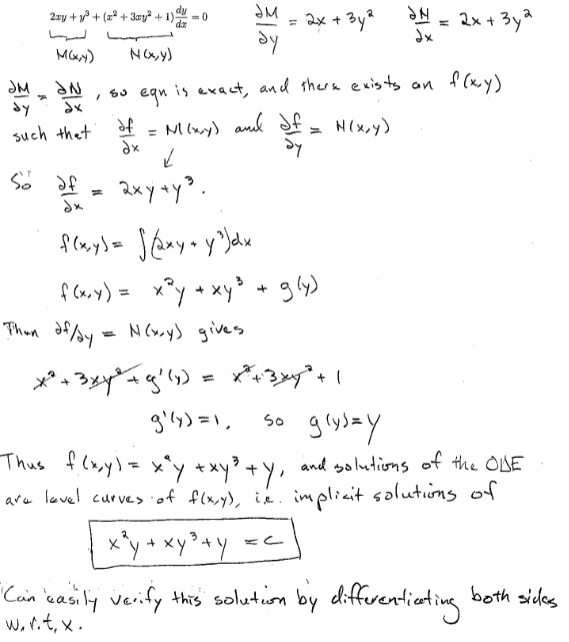 2xy + y³ + (x² + 3xy² + 1) dy/dx = 0
∂M/∂y = 2x + 3y²   ∂N/∂x = 2x + 3y²
M(x,y)   N(x,y)
∂M/∂y = ∂N/∂x , so eqn is exact, and there exists an f(x,y)
such that ∂f/∂x = M(x,y) and ∂f/∂y = N(x,y)
So ∂f/∂x = 2xy + y³.
f(x,y) = ∫(2xy + y³)dx
f(x,y) = x²y + xy³ + g(y)
Then ∂f/∂y = N(x,y) gives
x² + 3xy² + g'(y) = x² + 3xy² + 1
g'(y) = 1, so g(y) = y
Thus f(x,y) = x²y + xy³ + y, and solutions of the ODE
are level curves of f(x,y), i.e. implicit solutions of
x²y + xy³ + y = c
Can easily verify this solution by differentiating both sides
w.r.t, x.